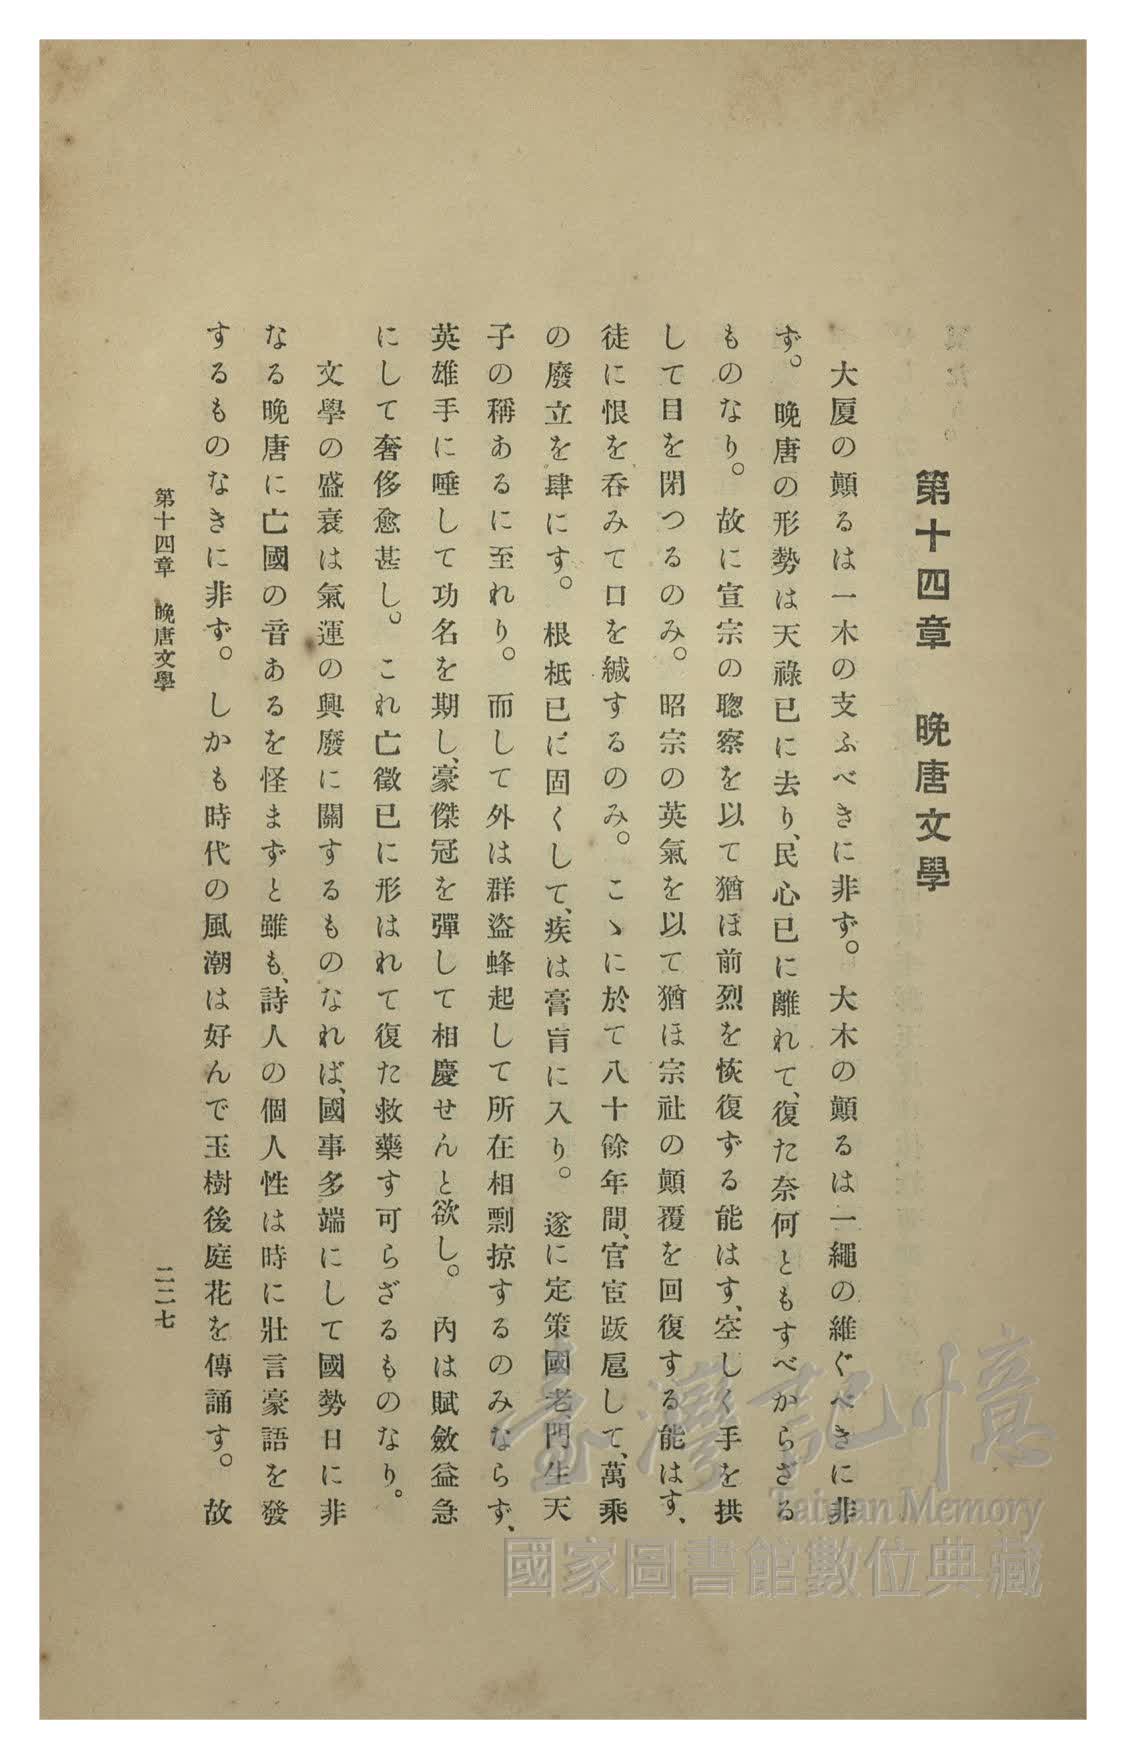 第十四章　晩唐文學
大厦の顚るは一木の支ふべきに非ず。大木の顚るは一繩の維ぐべきに非
ず。晩唐の形勢は天祿已に去り、民心已に離れて、復た奈何ともすべからざる
ものなり。故に宣宗の聰察を以て猶ほ前烈を恢復ずる能はす、空しく手を拱
して目を閉つるのみ。昭宗の英氣を以て猶ほ宗社の顚覆を回復する能はす、
徒に恨を呑みて口を緘するのみ。こゝに於て八十餘年間、官宦跋扈して、萬乘
の廢立を肆にす。根柢已に固くして、疾は膏肓に入り。遂に定策國老、門生天
子の稱あるに至れり。而して外は群盜蜂起して所在相剽掠するのみならず、
英雄手に唾して功名を期し、豪傑冠を彈して相慶せんと欲し。內は賦斂益急
にして奢侈愈甚し。これ亡徵已に形はれて復た救藥す可らざるものなり。
文學の盛衰は氣運の興廢に關するものなれば、國事多端にして國勢日に非
なる晩唐に亡國の音あるを怪まずと雖も、詩人の個人性は時に壯言豪語を發
するものなきに非ず。しかも時代の風潮は好んで玉樹後庭花を傳誦す。故
第十四章　晩唐文學
二二七
臺灣記憶
Taiwan Memory
國家圖書館數位典藏